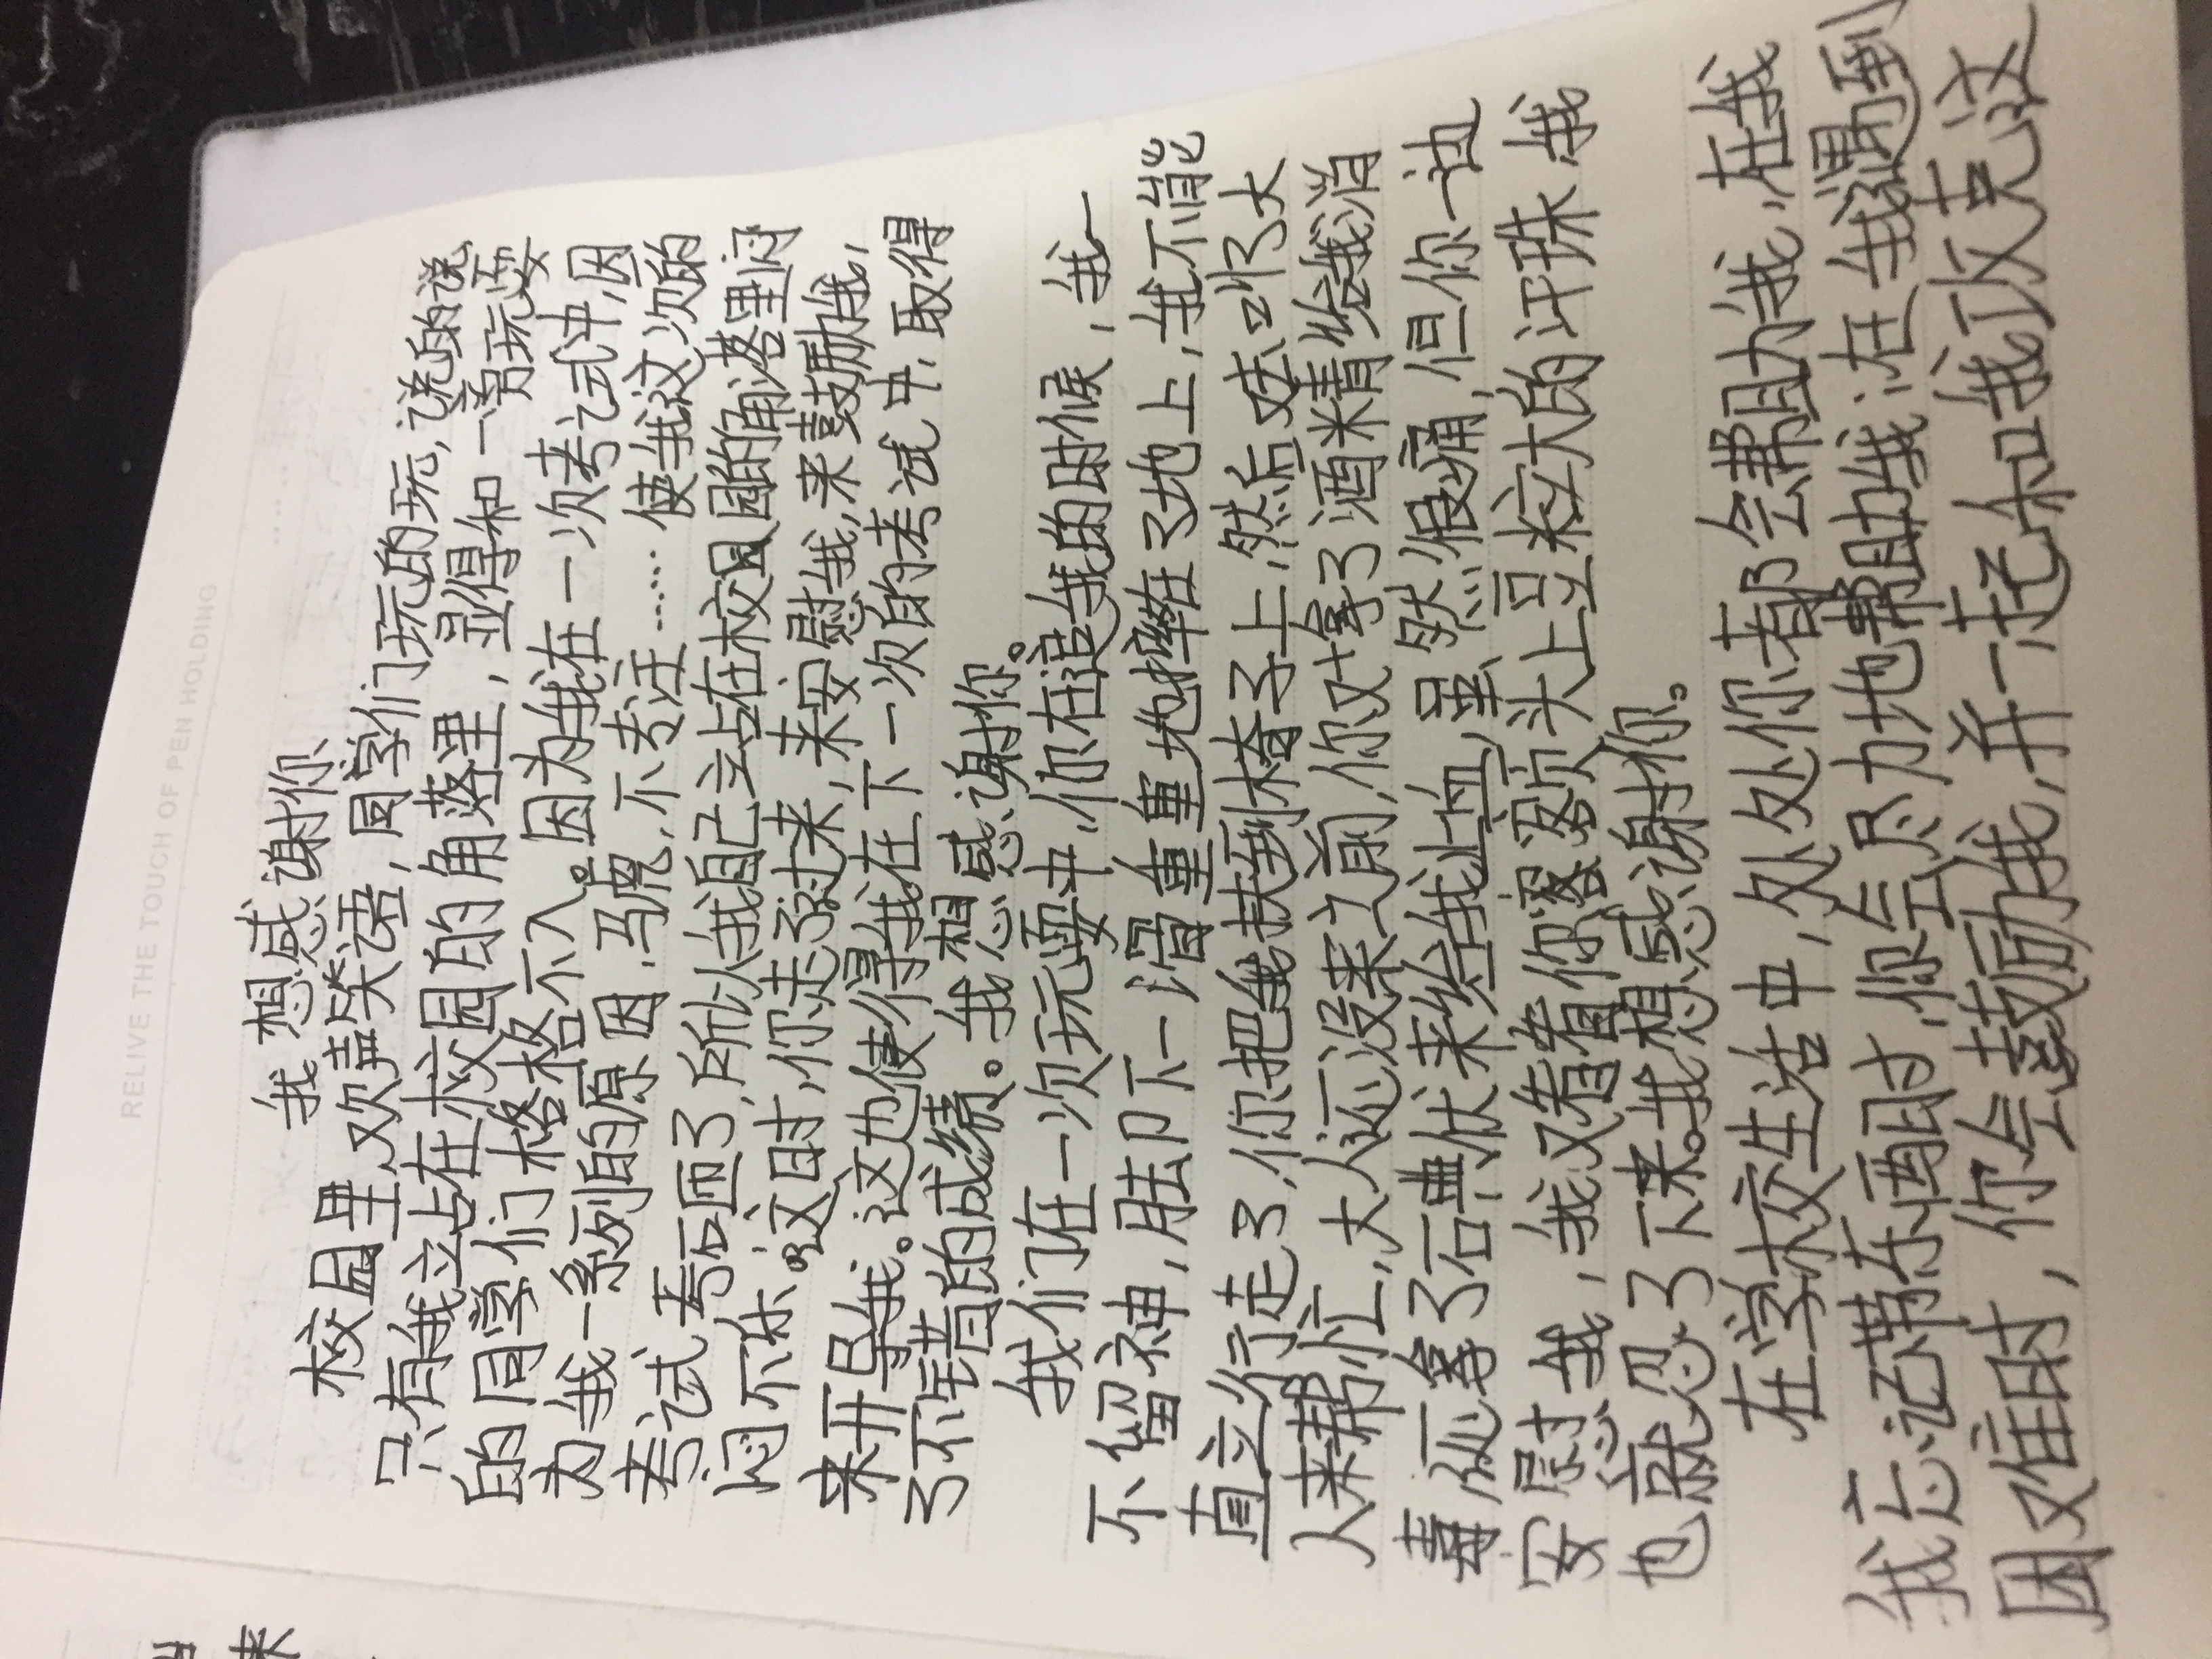 RELIVE THE TOUCH OF PEN HOLDING
我想感谢你
校园里,欢声笑语,同学们玩的玩,说的说
只有我立占在校园的角落里,显得和一旁玩耍
的同学们格格不入。因为我在一次考试中,因
为我一系列的原因,马虎,不专注……使我这次的
考试考砸了,所以我自己立占在校园的角落里闷
闷不乐。这时,你走了过来,来安慰我,来鼓励我,
来开导我。这也使得我在下一次的考试中,取得
了不错的成绩。我想感谢你。
我们在一次玩耍中,你在追我的时候,我一
不留神,脚下一滑重重地摔在了地上,我不能
直立行走了,你把我扶到椅子上,然后去叫了大
人来帮忙,大人还没来之前,你又拿了酒精给我消
毒,还拿了石典伏来给我止血,虽然很痛,但你一边
安慰我,我又看着你满头上豆粒大的汗珠,我
也就忍了下来。我想感谢你。
在学校生活中,处处你都会帮助我,在我
我忘记带东西时,你会尽力地帮助我;在我遇到
困难时,你会鼓励我,并一起和我攻克这
来